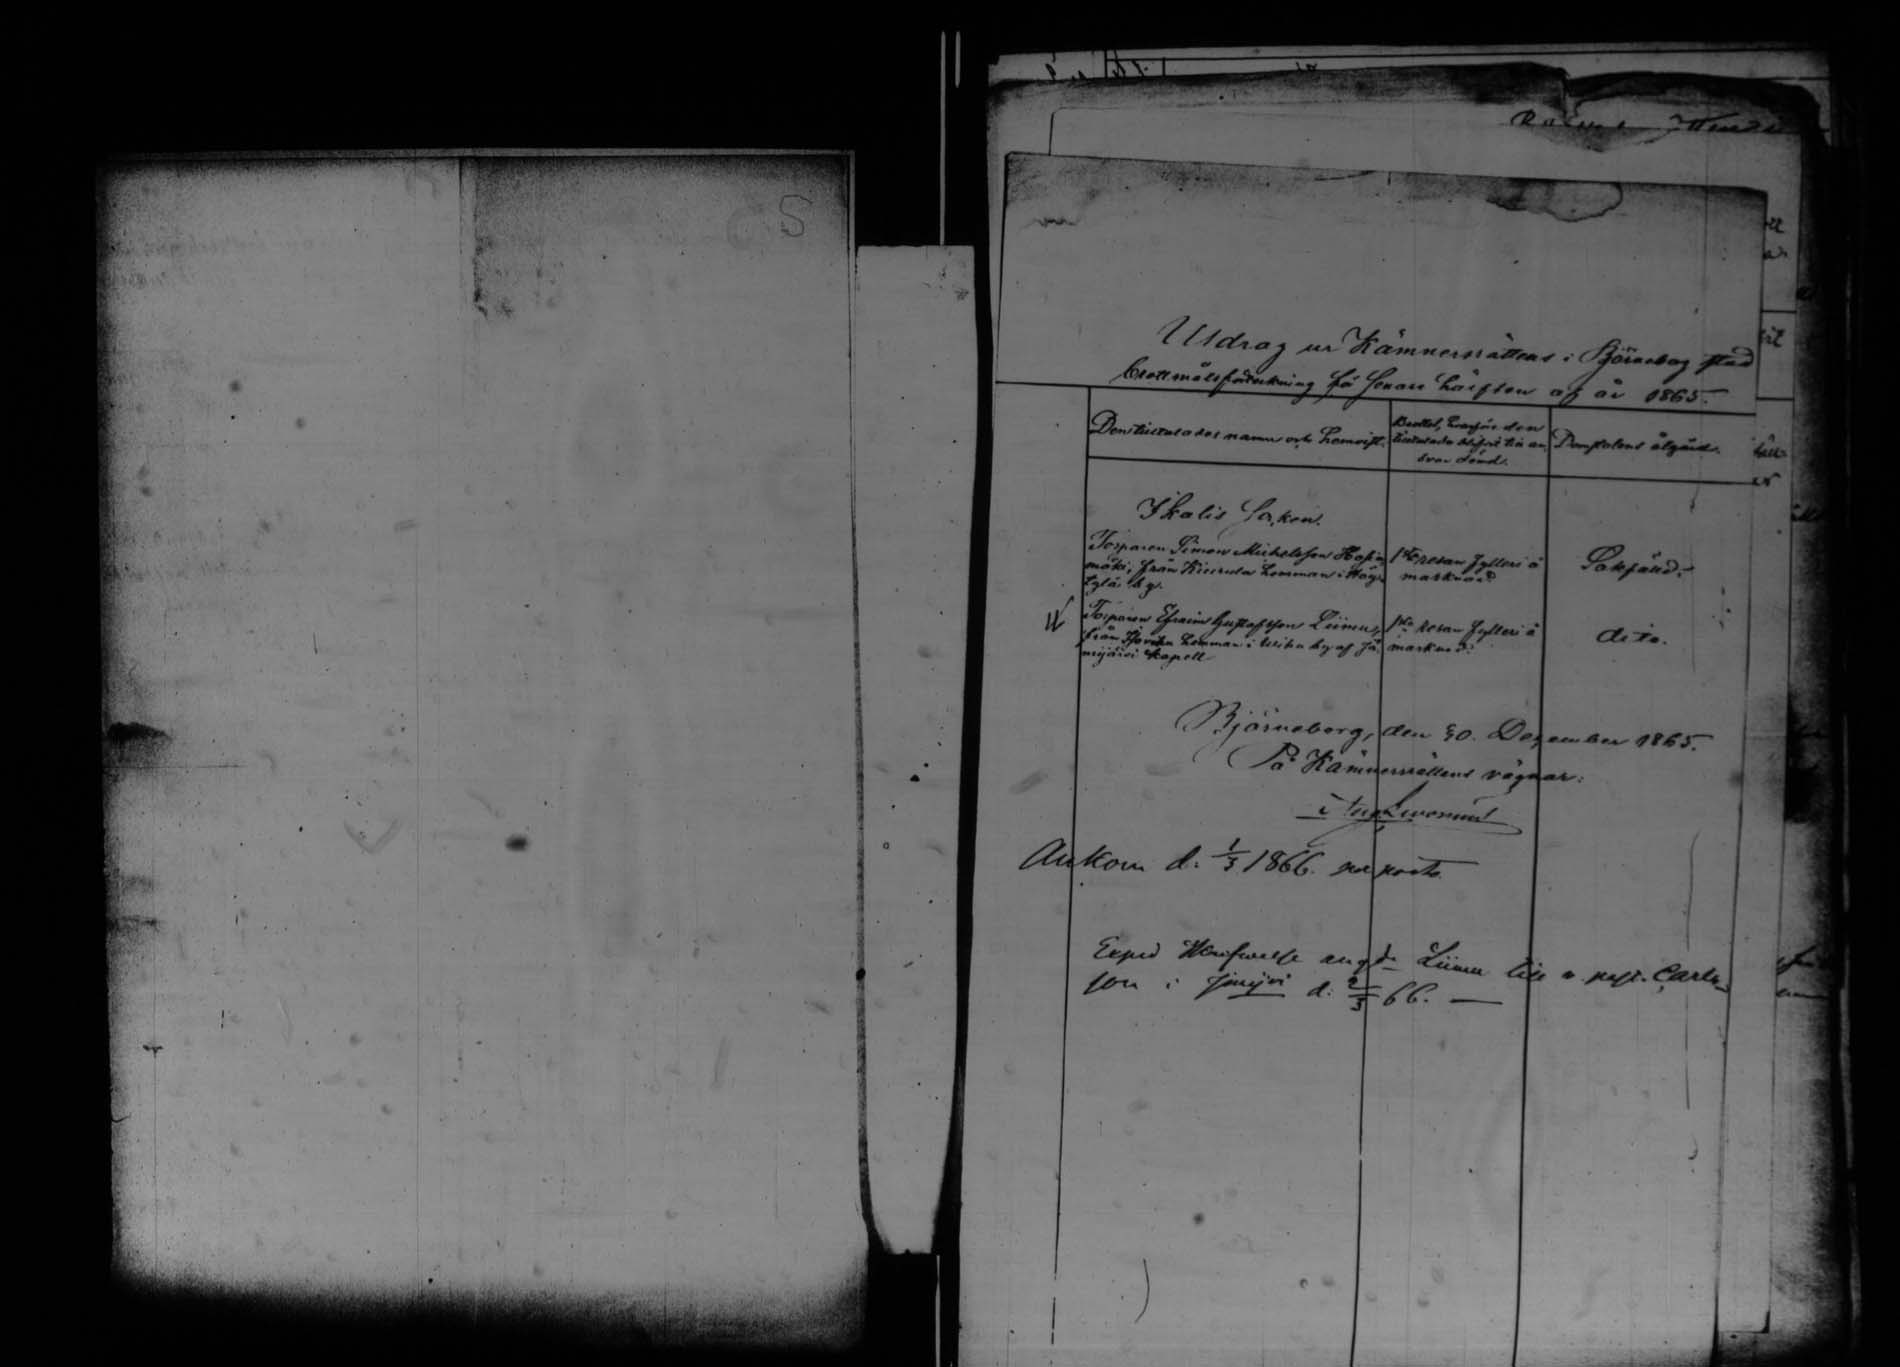 Utdrag ur Kämnersrättens i Björneborg stad
brottmålsförteckning för senare hälften af år 1865.
Den tilltalades namn och hemvist.
Brottet, hvarför den
tilltalade blifvit till an-
svar dömd.
Domstolens åtgärd.
Ikalis Socken.
Torparen Simon Michelsson
mäki, från hemman i
kylä by.
1sta resan fylleri å
marknad.
Sakfälld.
Torparen Efraim Gustafsson Liimu,
från hemman i by af Jä-
mijärvi kapell
1sta resan fylleri å
marknad.
dito.
Björneborg, den 30. December 1865.
På Kämnersrättens vägnar:
Ankom d. 1/3 1866. per posto
Exped angde Liimu till v. past. Carls-
son i Jmijvi d. 2/3 66.